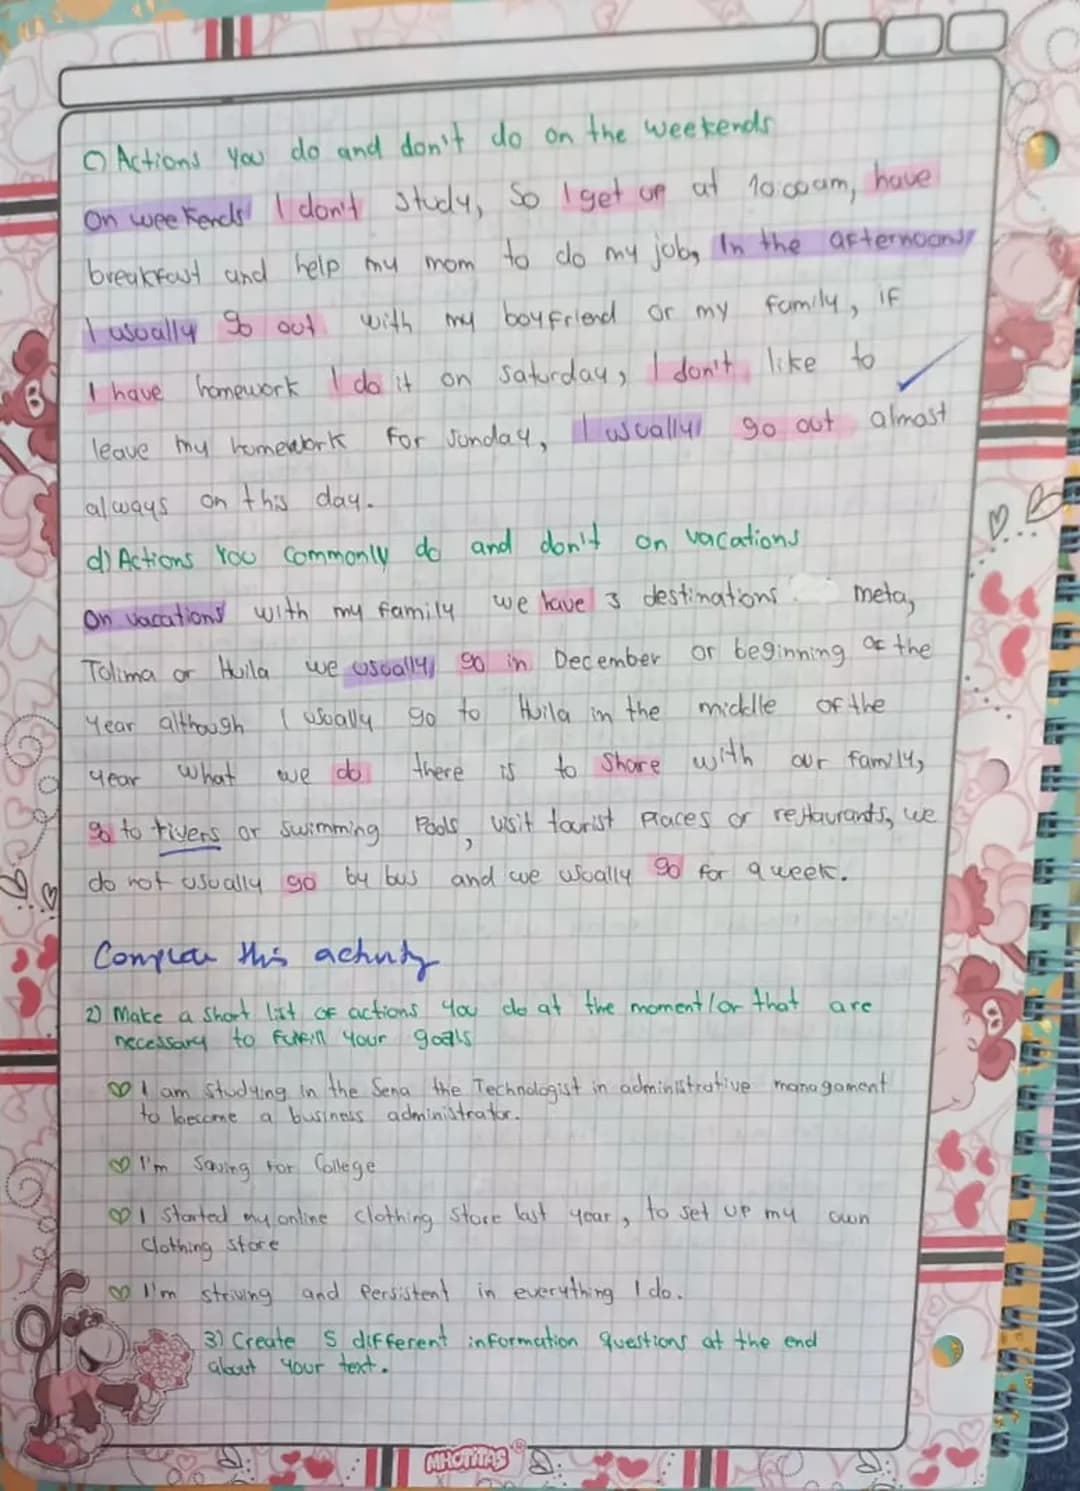 c) Actions you do and don't do on the weekends
On weekends I don't study, so I get up at 10:00am, have
breakfast and help my mom to do my job, In the afternoons
I usually go out with my boyfriend or my family, if
I have homework I do it on saturday, I don't like to
leave my homework for sunday, I usually go out almost
always on this day.
d) Actions You commonly do and don't on vacations
On vacations with my family we have 3 destinations meta,
Tolima or Huila we usually go in December or beginning of the
year although I usually go to Huila in the middle of the
year what we do there is to share with our family,
go to rivers or swimming Pools, visit tourist places or restaurants, we
do not usually go by bus and we usually go for a week.
Complete this activity
2) Make a short list of actions you do at the moment/or that are
necessary to fulfill your goals
I am studying in the Sena the Technologist in administrative managament
to become a business administrator.
I'm saving for College
I started my online clothing store last year, to set up my own
clothing store
I'm striving and persistent in everything I do.
3) Create 5 different information questions at the end
about your text.
MHOTITAS